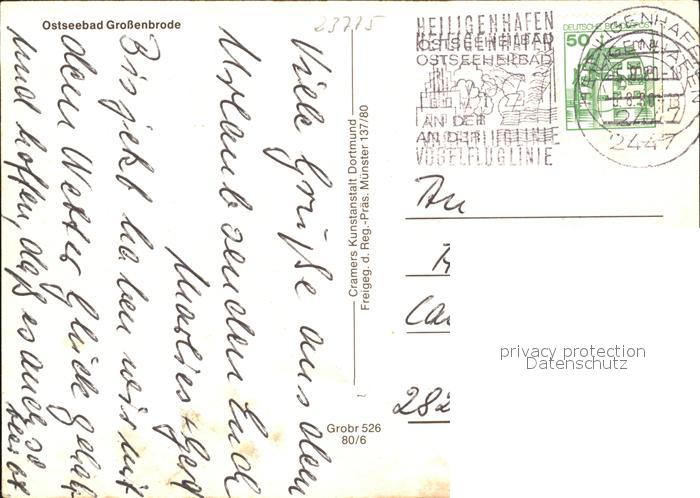 Ostseebad Großenbrode
23775
Viele Grüße aus dem
Urlaub senden Euch
Marlies + Gerd
Bis jetzt haben wir mit
dem Wetter Glück gehabt
und hoffen, daß es auch so
bleibt
Cramers Kunstanstalt Dortmund
Freigeg. d. Reg.-Präs. Münster 137/80
Grobr 526
80/6
HEILIGENHAFEN
OSTSEEHEILBAD
HEILIGENHAFEN
OSTSEEHEILBAD
AN DER
VOGELFLUGLINIE
AN DER
VOGELFLUGLINIE
DEUTSCHE BUNDESPOST
50
HEILIGENHAFEN
2447
HEILIGENHAFEN
2447
An
282
privacy protection
Datenschutz